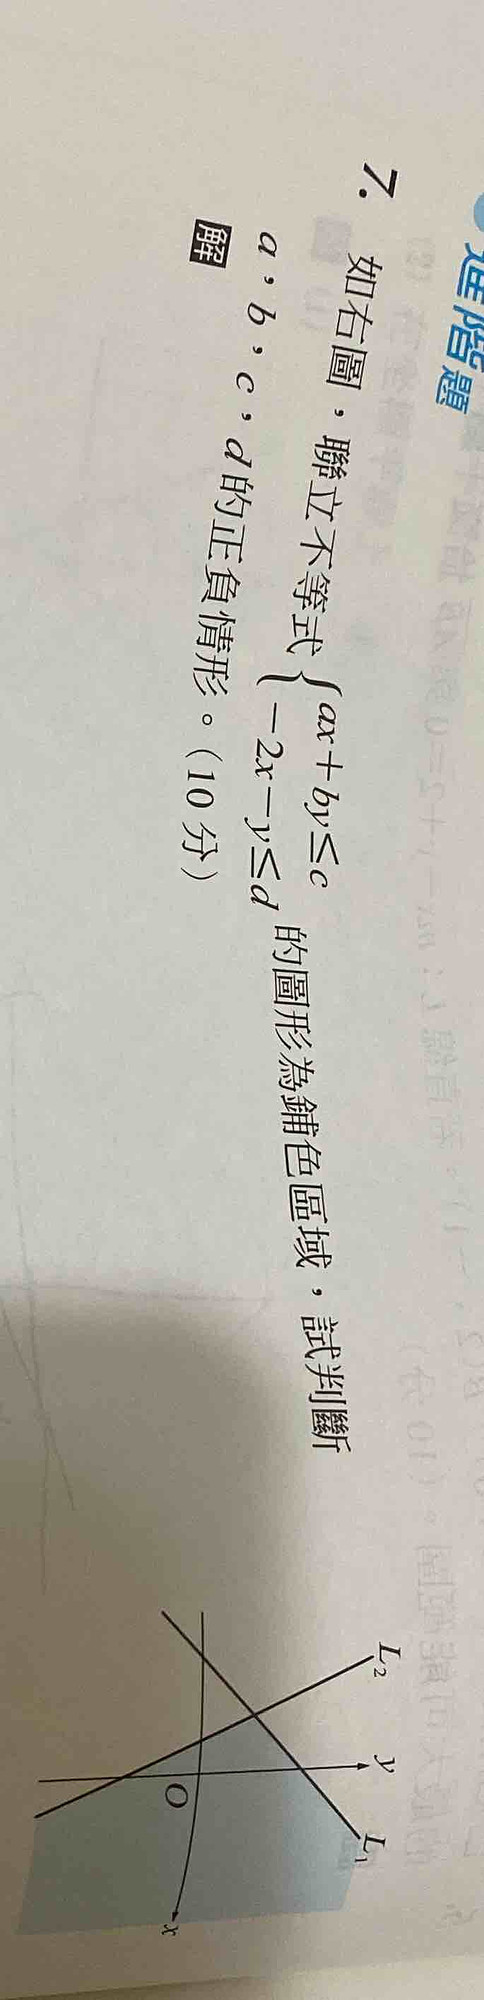 進階題
7. 如右圖，聯立不等式{ax+by≤c
-2x-y≤d 的圖形為鋪色區域，試判斷
a，b，c，d的正負情形。（10分）
解
L₂
y
L₁
O
x